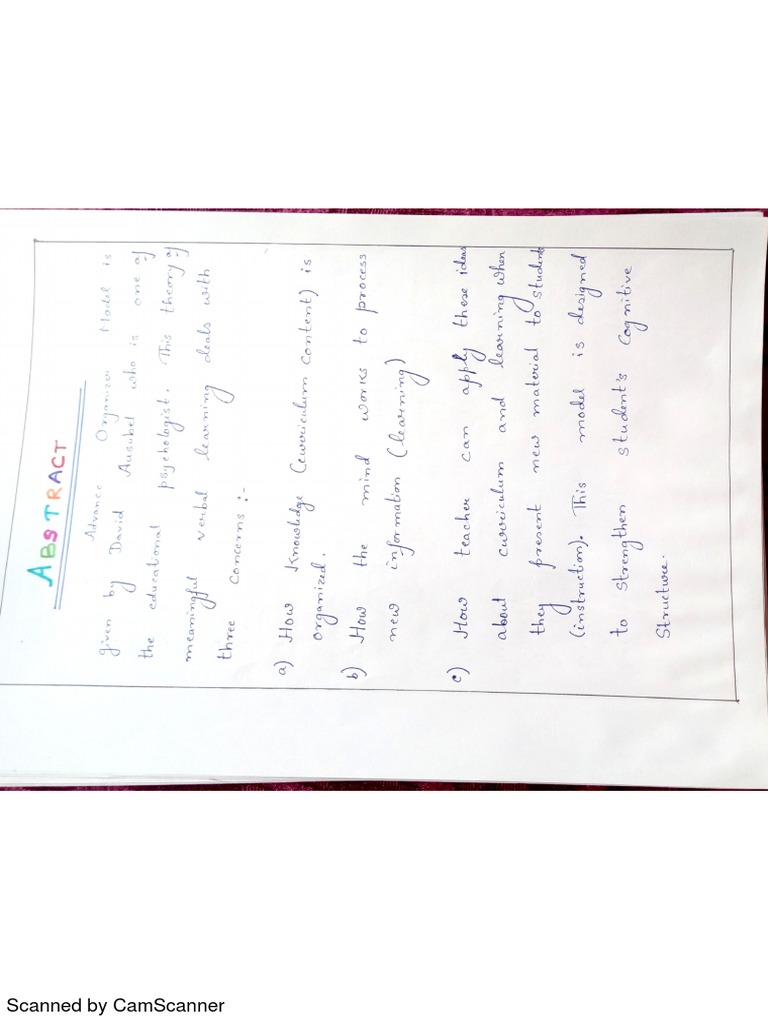 ABSTRACT
Advance Organizer Model is
given by David Ausubel who is one of
the educational psychologist. This theory of
meaningful verbal learning deals with
three concerns :-
a) How Knowledge (curriculum content) is
organized.
b) How the mind works to process
new information (learning)
c) How teacher can apply these ideas
about curriculum and learning when
they present new material to students
(instruction). This model is designed
to strengthen student's cognitive
Structure.
Scanned by CamScanner